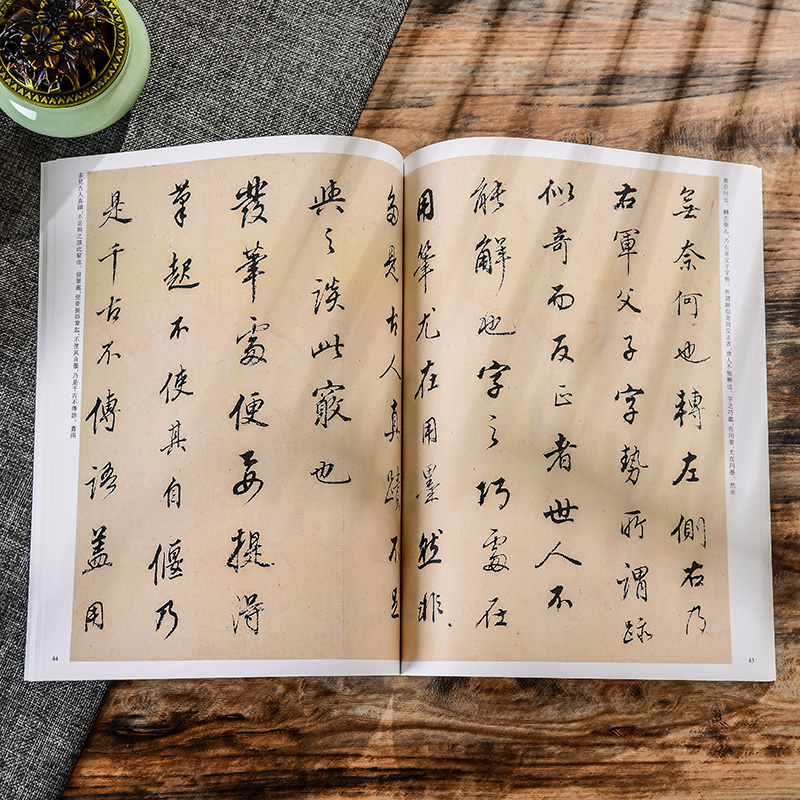 無奈何也。轉左側右,乃右軍父子字勢。所謂跡似奇而反正者,世人不能解也。字之巧處,在用筆,尤在用墨。然非
無奈何也轉左側右乃
右軍父子字勢所謂跡
似奇而反正者世人不
能解也字之巧處在
用筆尤在用墨然非
43
多見古人真蹟不足
與之談此竅也
發筆處便要提得
筆起不使其自偃乃
是千古不傳語蓋用
多見古人真蹟,不足與之談此竅也。發筆處,便要提得筆起,不使其自偃,乃是千古不傳語。蓋用
44